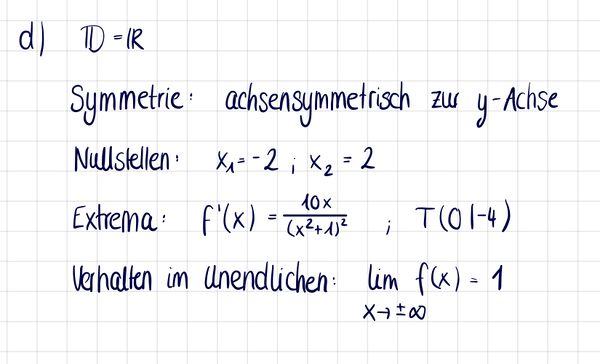 d) 𝔻 = ℝ
Symmetrie: achsensymmetrisch zur y-Achse
Nullstellen: x₁ = -2 ; x₂ = 2
Extrema: f'(x) = 10x/(x²+1)² ; T(0|-4)
Verhalten im Unendlichen: lim f(x) = 1
x→±∞